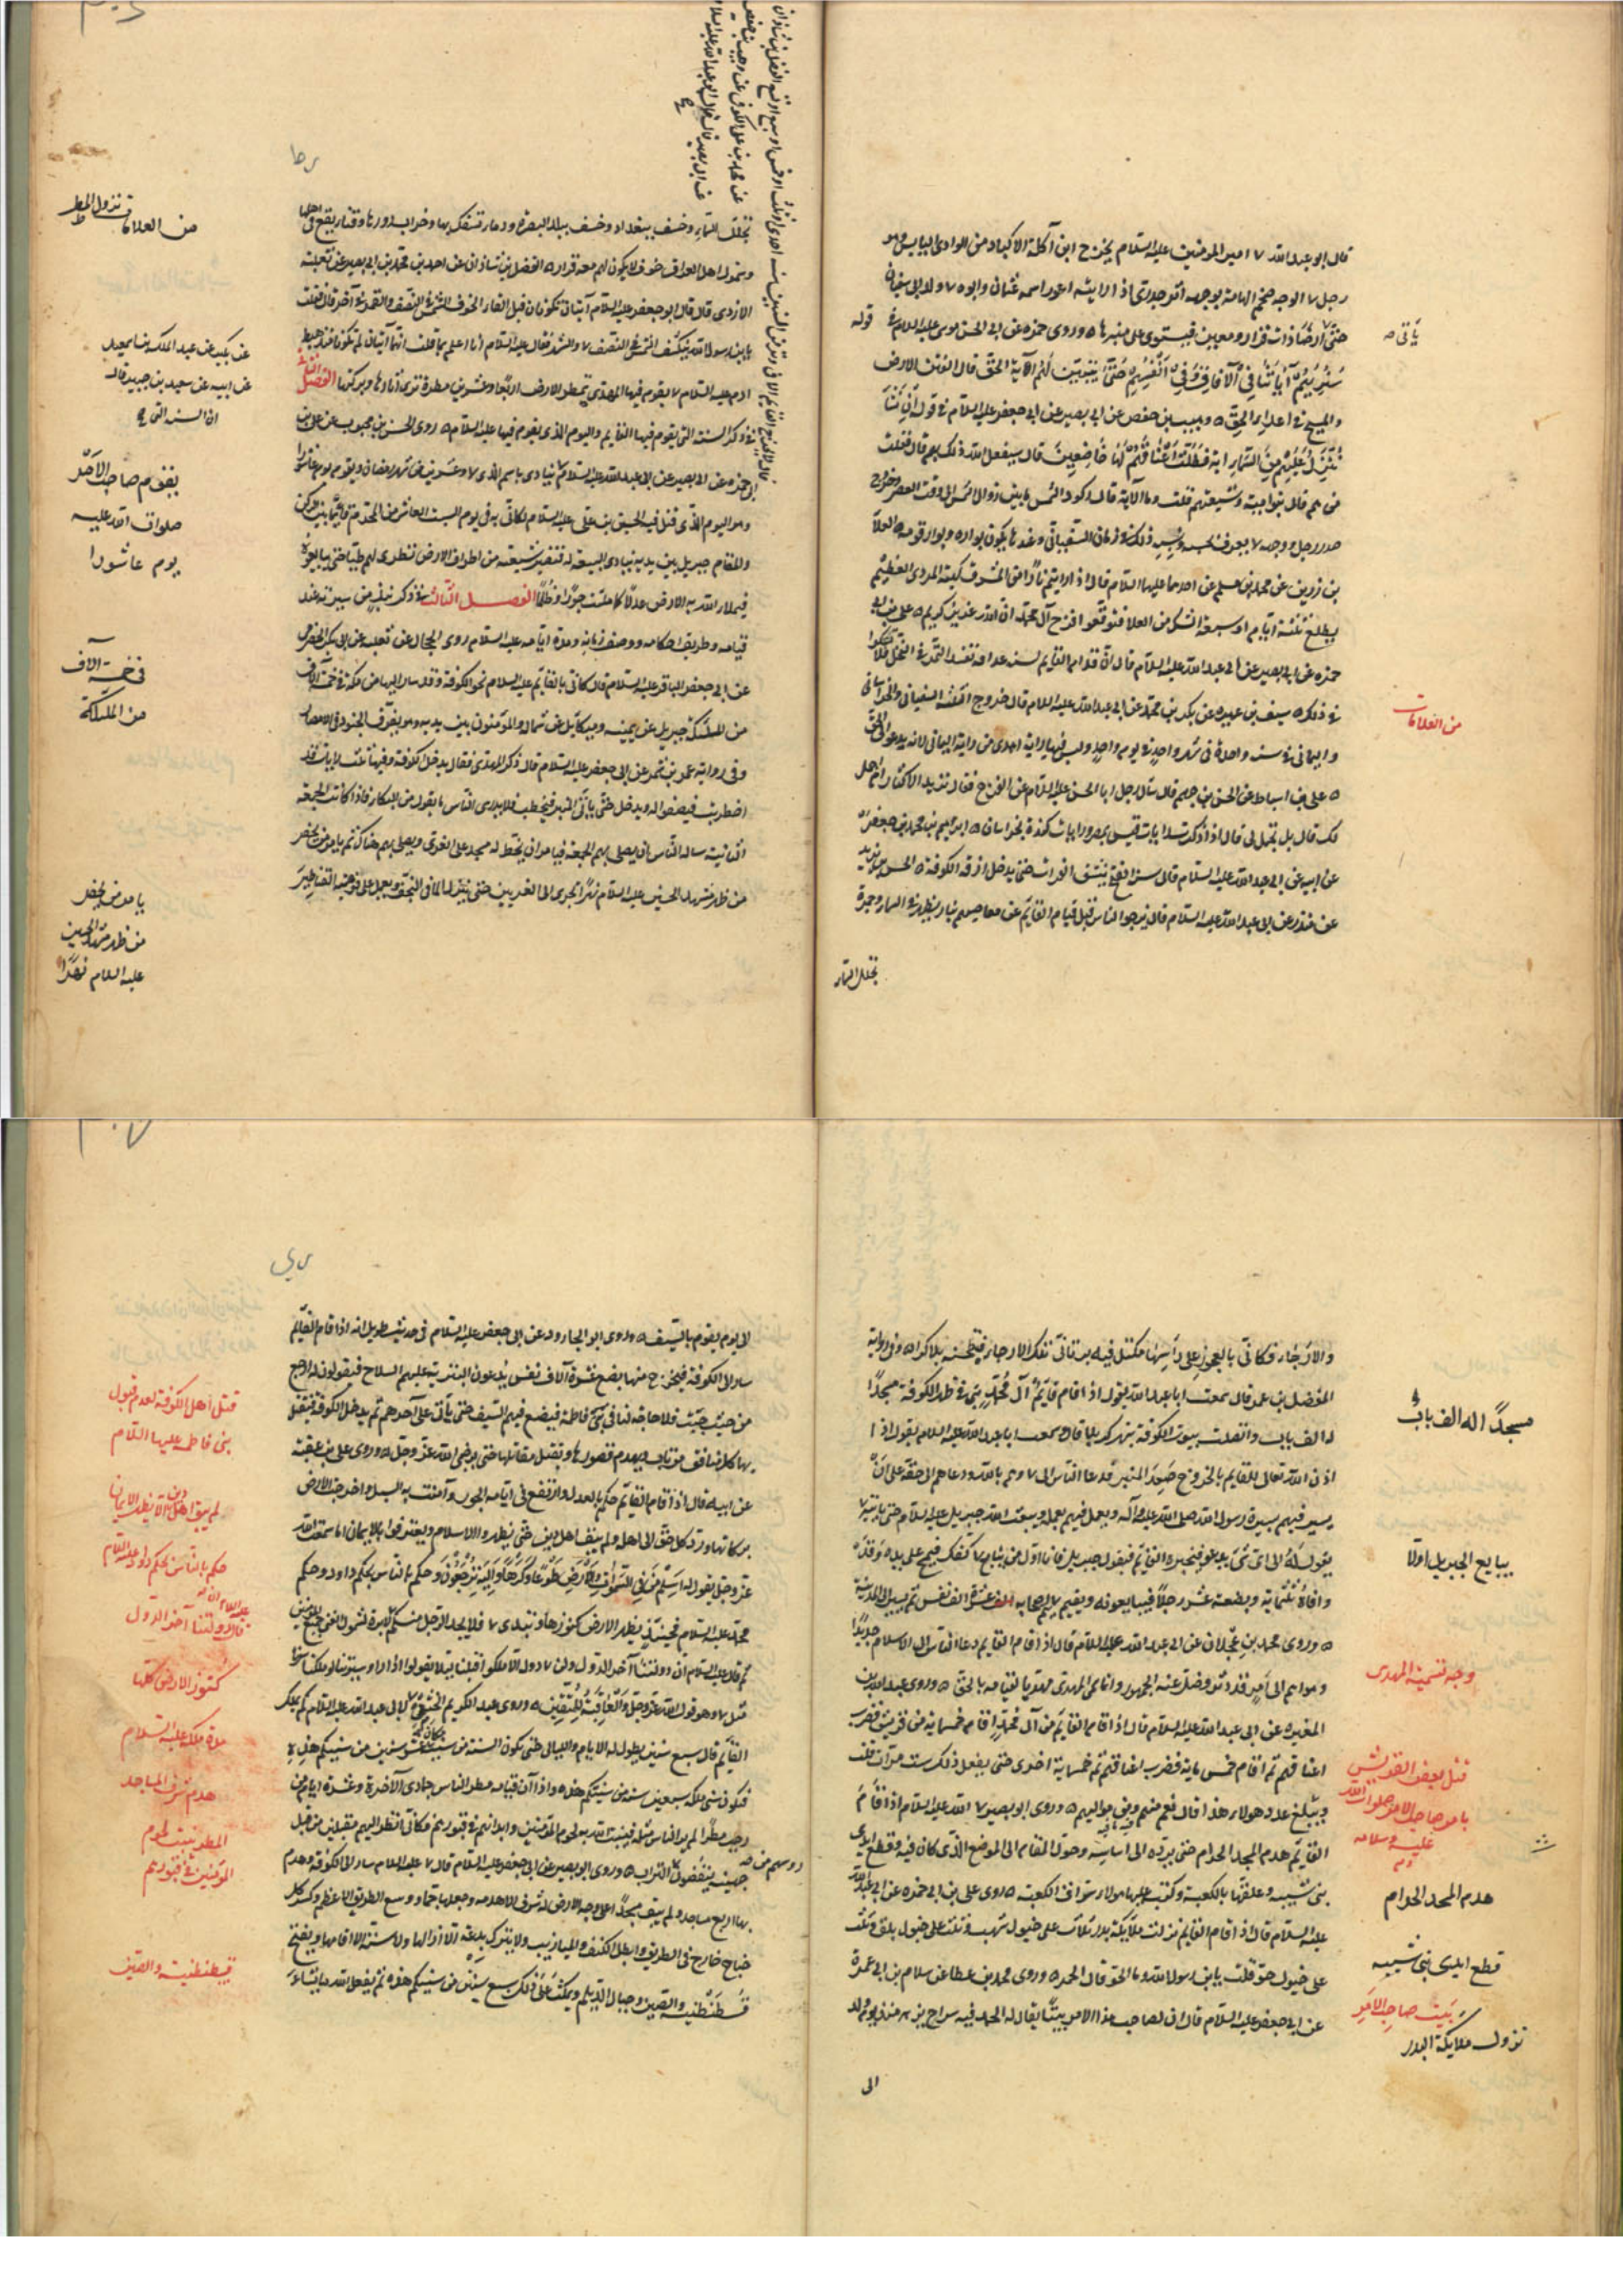 قال ابو عبد الله ٧ امير المومنين عليه السلام يخرج ابن آكلة الاكباد من الوادى اليابس وهو
رجل ٧ الوجه ضخم الهامة بوجهه اثر جدرى اذا رايته اعور اسمه عثمان وابوه ٧ ولد ابى سفيان
حتى ارضا ذات قرار ومعين فيستوى على منبرها ٥ وروى حمزه عن ابى الحسن موسى عليه السلام فى قوله
سَنُرِيهِمْ آيَاتِنَا فِى الْآفَاقِ وَفِى أَنْفُسِهِمْ حَتَّىٰ يَتَبَيَّنَ لَهُمْ الآية الحق قال الفتن الارض
والمسخ فى اعداء الحق ٥ وهيب بن حفص عن ابى بصير عن ابى جعفر عليه السلام فى قوله ان نشا
نُنَزِّلْ عَلَيْهِمْ مِنَ السَّمَاءِ آية فَظَلَّتْ أَعْنَاقُهُمْ لَهَا خَاضِعِينَ قال سيفعل الله ذلك بهم قال فقلت
من هم قال بنو امية وشيعتهم قلت وما الآية قال ركود الشمس ما بين زوال الشمس الى وقت العصر وخروج
صدر رجل ووجه ٧ يعرف بحسبه ونسبه ذلك فى زمان السفيانى وعندها يكون بواره وبوار قومه ٥ العلا
بن رزين عن محمد بن مسلم عن احدهما عليهما السلام قال اذا رايتم نارا من المشرق كهيئة المردى العظيم
يطلع ثلثة ايام او سبعة الشك من العلا فتوقعوا فرج آل محمد ان الله عزيز كريم ٥ على بن ابى
حمزه عن ابى بصير عن ابى عبد الله عليه السلام قال ان قدام القايم لسنة غداقة تفسد التمر فى النخل فلا تشكوا
فى ذلك ٥ سيف بن عميره عن بكر بن محمد عن ابى عبد الله عليه السلام قال خروج الثلثة السفيانى والخراسانى
واليمانى فى سنة واحدة فى شهر واحد فى يوم واحد وليس فيها راية اهدى من راية اليمانى لانه يدعو الى الحق
٥ على بن اسباط عن الحسن بن جهم قال سال رجل ابا الحسن عليه السلام عن الفرج فقال تريد الاكثار ام اجمل
لك قال بل تجمل لى قال اذا ركزت رايات قيس بمصر ورايات كندة بخراسان ٥ ابراهيم بن محمد بن جعفر
عن ابيه عن ابى عبد الله عليه السلام قال سنة الفتح ينبثق الفرات حتى يدخل ازقة الكوفة ٥ الحسين بن يزيد
عن منذر عن ابى عبد الله عليه السلام قال يزجر الناس قبل قيام القايم عن معاصيهم بنار يظهر فى السما وحمرة
تجلل السماء
يأتى
من العلامات
تجلل السماء وخسف ببغداد وخسف ببلد البصره ودماء تسفك بها وخراب دورها وفناء يقع فى اهلها
وشمول اهل العراق خوف لا يكون لهم معه قرار ٥ الفضل بن شاذان عن احمد بن محمد بن ابى بصير عن ثعلبة
الازدى قال قال ابو جعفر عليه السلام آيتان تكونان قبل القايم الخسوف الشمس فى النصف والقمر فى آخره قال قلت
يابن رسول الله ينكسف الشمس فى النصف ٧ والشهر فقال عليه السلام انا اعلم بما قلت انهما آيتان لم تكونا منذ هبط
ادم عليه السلام ٧ يقوم فيها المهدى تمطر الارض اربعا وعشرين مطرة ترى آثارها وبركتها الفصل الثانى
فى ذكر السنة التى يقوم فيها القايم واليوم الذى يقوم فيها عليه السلام ٥ روى الحسن بن محبوب عن على بن
ابى حمزه عن ابى بصير عن ابى عبد الله عليه السلام ينادى باسم الذى ٧ وعشرين من شهر رمضان ويقوم يوم عاشورا
وهو اليوم الذى قتل فيه الحسين بن على عليه السلام لكانى به فى يوم السبت العاشر من المحرم قايما بين الركن
والمقام جبريل بين يديه ينادى البيعة له فتصير شيعته من اطراف الارض تطوى لهم طيا حتى يبايعوه
فيملا الله به الارض عدلا كما ملئت جورا وظلما الفصل الثالث فى ذكر نبذ من سيرته عند
قيامه وطريق احكامه ووصف زمانه ومدة ايامه عليه السلام روى الحجال عن ثعلبه عن ابى بكر الحضرمى
عن ابى جعفر الباقر عليه السلام قال كانى بالقايم عليه السلام نحو الكوفة وقد سار اليها من مكة فى خمسة آلاف
من الملئكة جبريل عن يمينه وميكايل عن شماله والمؤمنون بين يديه وهو يفرق الجنود فى الامصار
وفى رواية عمرو بن شمر عن ابى جعفر عليه السلام قال ذكر المهدى فقال يدخل الكوفة وفيها ثلث رايات قد
اضطربت فيصفوا له ويدخل حتى ياتى المنبر فيخطب فلا يدرى الناس ما يقول من البكاء فاذا كانت الجمعة
الثانية ساله الناس ان يصلى بهم الجمعة فيامر ان يخط له مسجد على الغرى ويصلى بهم هناك ثم يامر من يحفر
من ظهر مشهد الحسين عليه السلام نهرا يجرى الى الغريين حتى ينزل الما فى النجف ويعمل على فوهته القناطير
من العلامات نزول المطر
عن بكير عن عبد الملك بن اسمعيل
عن ابيه عن سعيد بن جبير قال
ان السنه التى
يقوم صاحب الامر
صلوات الله عليه
يوم عاشورا
فى خمسة آلاف
من الملئكة
يامر من يحفر
من ظهر مشهد الحسين
عليه السلام نهرا
والارحاء فكانى بالعجوز على راسها مكتل فيه بر تاتى تلك الارحاء فتطحنه بلا كراء ٥ وفى رواية
المفضل بن عمر قال سمعت ابا عبد الله يقول اذا قام قايم آل محمد بنى فى ظهر الكوفة مسجدا
له الف باب واتصلت بيوت الكوفة بنهر كربلا قال وسمعت ابا عبد الله عليه السلام يقول اذا
اذن الله تعالى للقايم بالخروج صعد المنبر فدعا الناس الى ٧ وهم بالله ودعاهم الى حقه على ان
يسير فيهم بسيرة رسول الله صلى الله عليه وآله ويعمل فيهم بعمله ويبعث الله جبريل عليه السلام حتى ياتيه ٧
يقول له الى اى شى يدعو فيخبره القايم فيقول جبريل فانا اول من يبايع ٧ كفك فيمسح على يده وقد
وافاه ثلثماية وبضعة عشر رجلا فيبايعونه ويقيم بمكة ٧ اصحابه عشرة الف نفس ثم يسير الى المدينة
٥ وروى محمد بن عجلان عن ابى عبد الله عليه السلام قال اذا قام القايم دعا الناس الى الاسلام جديدا
وهداهم الى امر قد دثر وضل عنه الجمهور وانما سمى المهدى مهديا لقيامه بالحق ٥ وروى عبد الله بن
المغيره عن ابى عبد الله عليه السلام قال اذا قام القايم من آل محمد اقام خمسماية من قريش فضرب
اعناقهم ثم اقام خمس ماية فضرب اعناقهم ثم خمسماية اخرى حتى يفعل ذلك ست مرات قلت
ويبلغ عدد هولاء هذا قال نعم منهم ومن مواليهم ٥ وروى ابو بصير ٧ الله عليه السلام اذا قام
القايم هدم المسجد الحرام حتى يرده الى اساسه وحول المقام الى الموضع الذى كان فيه وقطع ايدى
بنى شيبه وعلقها بالكعبة وكتب عليها هولاء سراق الكعبة ٥ روى على بن ابى حمزه عن ابى عبد الله
عليه السلام قال اذا قام القايم نزلت ملايكة بدر ثلث على خيول شهب وثلث على خيول بلق وثلث
على خيول حو قلت يابن رسول الله وما الحو قال الحمر ٥ وروى محمد بن عطا عن سلام بن ابى عمرة
عن ابى جعفر عليه السلام قال ان لصاحب هذا الامر بيتا يقال له الحمد فيه سراج يزهر منذ يوم ولد
الى
مسجدا له الف باب
يبايع الجبريل اولا
وجه تسمية المهدى
قتل بعض القريش
بامر صاحب الامر صلوات الله
عليه وسلامه
هدم المسجد الحرام
قطع ايدى بنى شيبه
بيت صاحب الامر
نزول ملايكة البدر
الى يوم يقوم بالسيف ٥ وروى ابو الجارود عن ابى جعفر عليه السلام فى حديث طويل انه اذا قام القايم
سار الى الكوفة فيخرج منها بضع عشرة آلاف نفس يدعون البترية عليهم السلاح فيقولون له ارجع
من حيث جيت فلا حاجة لنا فى بنى فاطمة فيضع فيهم السيف حتى ياتى على آخرهم ثم يدخل الكوفة فيقتل
بها كل منافق مرتاب ويهدم قصورها ويقتل مقاتلها حتى يرضى الله عز وجل ٥ وروى على بن عقبة
عن ابيه قال اذا قام القايم حكم بالعدل وارتفع فى ايامه الجور وآمنت به السبل واخرجت الارض
بركاتها ورد كل حق الى اهله ولم يبق اهل دين حتى يظهروا الاسلام ويعترفوا بالايمان اما سمعت الله
عز وجل يقول وله اسلم من فى السموات والارض طوعا وكرها واليه ترجعون وحكم بالناس بحكم داود وحكم
محمد عليه السلام فحينئذ يظهر الارض كنوزها وتبدى ٧ فلا يجد الرجل منكم ٧ لبره لشمول الغنى جميع المومنين
ثم قال عليه السلام ان دولتنا اخر الدول ولن ٧ دولة الا ملكوا قبلنا ليلا يقولوا اذا راوا سيرتنا لو ملكنا سرنا
مثل ٧ وهو قول الله عز وجل والعاقبة للمتقين ٥ وروى عبد الكريم الخثعمى ٧ لابى عبد الله عليه السلام كم يملك
القايم قال سبع سنين يطول له الايام والليالى حتى تكون السنة من سنيه عشر سنين من سنيكم هذه
فيكون سنى ملكه سبعين سنه من سنيكم هذه واذا آن قيامه مطر الناس جمادى الآخرة وعشرة ايام من
رجب مطرا لم ير الناس مثله فينبت الله به لحوم المؤمنين وابدانهم فى قبورهم فكانى انظر اليهم مقبلين من قبل
جهينه ينفضون التراب ٥ وروى ابو بصير عن ابى جعفر عليه السلام قال ٧ عليه السلام سار الى الكوفة وهدم
بها اربع مساجد ولم يبق مسجدا على وجه الارض له شرف الا هدمه وجعلها جماء ووسع الطريق الاعظم وكسر كل
جناح خارج فى الطريق وابطل الكنف والميازيب ولا يترك بدعة الا ازالها ولا سنة الا اقامها ويفتح
قسطنطنيه والصين وجبال الديلم ويمكث على ذلك سبع سنين من سنيكم هذه ثم يفعل الله ما يشاء
قتل اهل الكوفة لعدم قبول
بنى فاطمه عليها السلام
لم يبق اهل دين الا يظهر الايمان
حكم بالناس بحكم داود عليه السلام
دولتنا آخر الدول
كنوز الارض كلها
مدة ملكه عليه السلام
هدم شرف المساجد
المطر ينبت لحوم
المومنين فى قبورهم
قسطنطنيه والصين